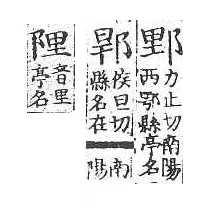 力止切南陽
西鄂縣亭名
侯旦切南
縣名在陽
音里
亭名